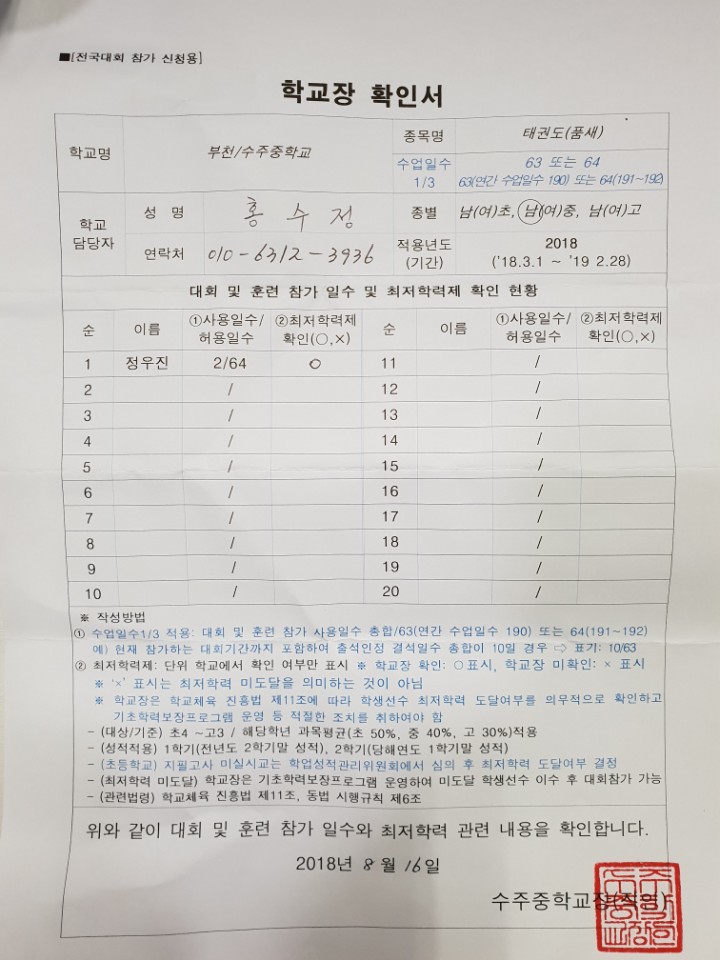 ■[전국대회 참가 신청용]
학교장 확인서
학교명 부천/수주중학교 종목명 태권도(품새)
수업일수 1/3 63 또는 64
63(연간 수업일수 190) 또는 64(191~192)
학교 담당자 성 명 홍수정 종별 남(여)초, 남(여)중, 남(여)고
연락처 010-6312-3936 적용년도 (기간) 2018
('18.3.1 ~ '19 2.28)
대회 및 훈련 참가 일수 및 최저학력제 확인 현황
순 이름 ①사용일수/허용일수 ②최저학력제 확인(○,×) 순 이름 ①사용일수/허용일수 ②최저학력제 확인(○,×)
1 정우진 2/64 ○ 11 /
2 / 12 /
3 / 13 /
4 / 14 /
5 / 15 /
6 / 16 /
7 / 17 /
8 / 18 /
9 / 19 /
10 / 20 /
※ 작성방법
① 수업일수1/3 적용: 대회 및 훈련 참가 사용일수 총합/63(연간 수업일수 190) 또는 64(191~192)
예) 현재 참가하는 대회기간까지 포함하여 출석인정 결석일수 총합이 10일 경우 ⇨ 표기: 10/63
② 최저학력제: 단위 학교에서 확인 여부만 표시 ※ 학교장 확인: ○표시, 학교장 미확인: × 표시
※ '×' 표시는 최저학력 미도달을 의미하는 것이 아님
※ 학교장은 학교체육 진흥법 제11조에 따라 학생선수 최저학력 도달여부를 의무적으로 확인하고
기초학력보장프로그램 운영 등 적절한 조치를 취하여야 함
- (대상/기준) 초4 ~고3 / 해당학년 과목평균(초 50%, 중 40%, 고 30%)적용
- (성적적용) 1학기(전년도 2학기말 성적), 2학기(당해연도 1학기말 성적)
- (초등학교) 지필고사 미실시교는 학업성적관리위원회에서 심의 후 최저학력 도달여부 결정
- (최저학력 미도달) 학교장은 기초학력보장프로그램 운영하여 미도달 학생선수 이수 후 대회참가 가능
- (관련법령) 학교체육 진흥법 제11조, 동법 시행규칙 제6조
위와 같이 대회 및 훈련 참가 일수와 최저학력 관련 내용을 확인합니다.
2018년 8월 16일
수주중학교장(직인)